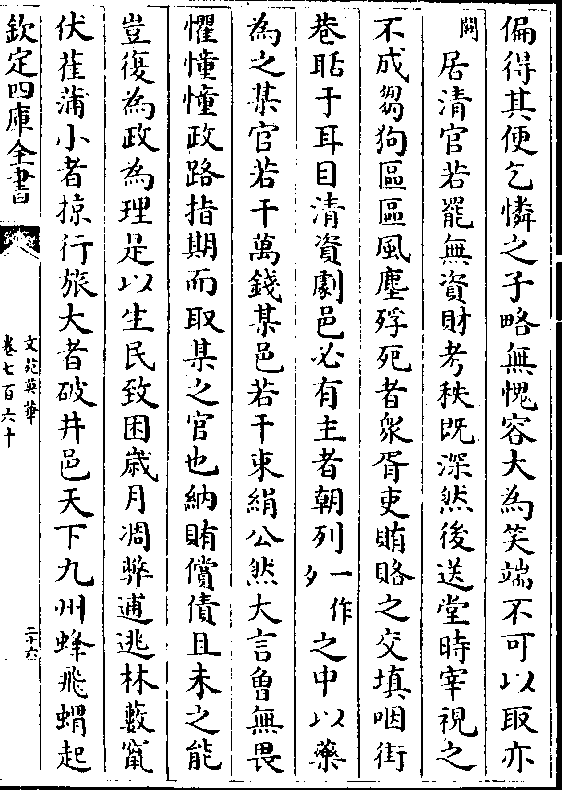 偏得其便乞憐之子略無愧容大為笑端不可以取亦
闕居清官若罷無資財考秩既深然後送堂時宰視之
不成芻狗區區風塵殍死者衆胥吏賄賂之交填咽街
巷聒于耳目清資劇邑必有主者朝列一作夕之中以藥
為之某官若干萬錢某邑若干束絹公然大言曾無畏
懼憧憧政路指期而取某之官也納賄償債且未之能
豈復為政為理是以生民致困歲月凋弊逋逃林藪竄
伏萑蒲小者掠行旅大者破井邑天下九州蜂飛蝟起
欽定四庫全書
文苑英華
卷七百六十
二十六